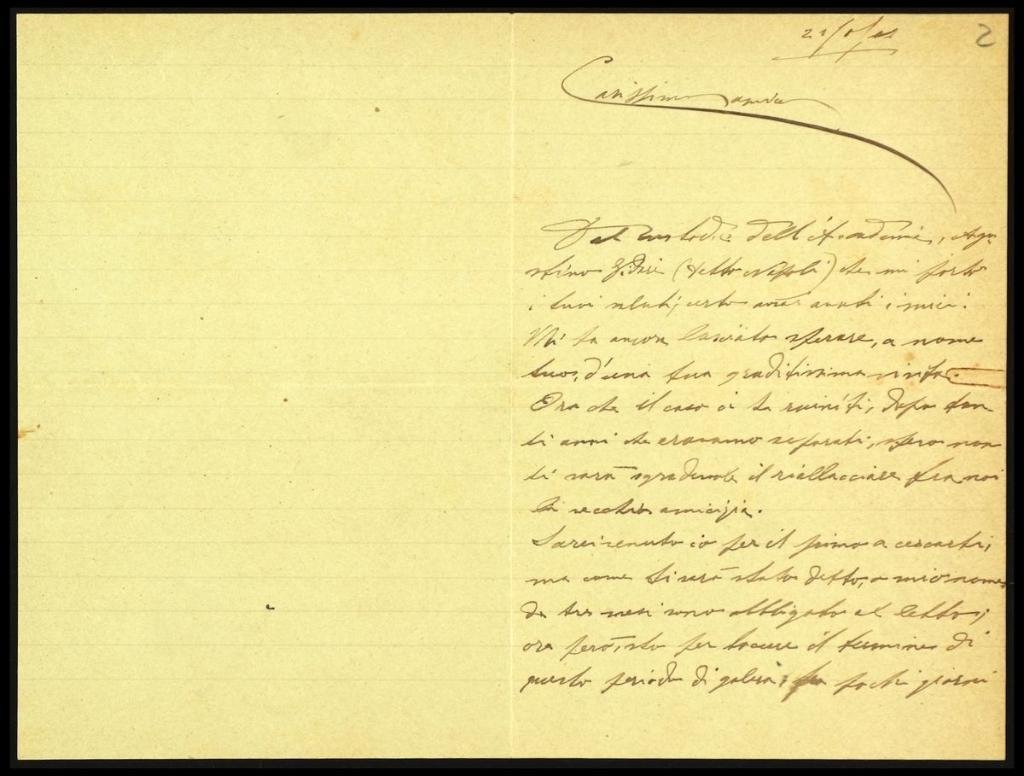 2
Carissimo amico
Dal custode dell'Accademia, Ago-
stino (detto Napoli) che mi portò
i tuoi saluti, certo avrai avuti i miei.
Mi ha ancora lasciato sperare, a nome
tuo, d'una tua graditissima visita.
Ora che il caso ci ha riuniti, dopo tan-
ti anni che eravamo separati, spero non
ti sarà sgradevole il riallacciare fra noi
la vecchia amicizia.
Sarei venuto io per il primo a cercarti,
ma come ti sarà stato detto, a mio nome,
da tre mesi sono obbligato al letto;
ora però, sto per toccare il termine di
questo periodo di galera; fra pochi giorni